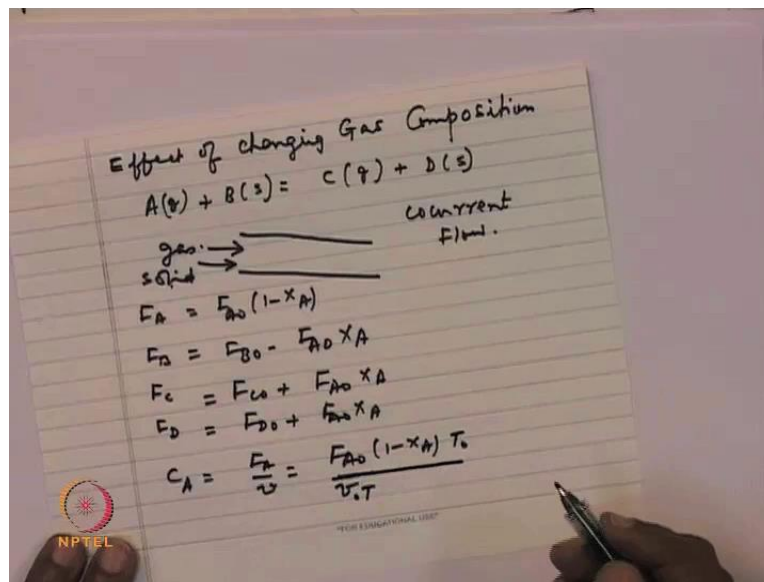 Effect of changing Gas Composition
A(g) + B(s) = C(g) + D(s)
gas.
solid
cocurrent
Flow.
F_A = F_A0 (1-X_A)
F_B = F_B0 - F_A0 X_A
F_C = F_C0 + F_A0 X_A
F_D = F_D0 + F_A0 X_A
C_A = F_A/v = F_A0 (1-X_A) T_0 / v_0 T
"FOR EDUCATIONAL USE"
NPTEL